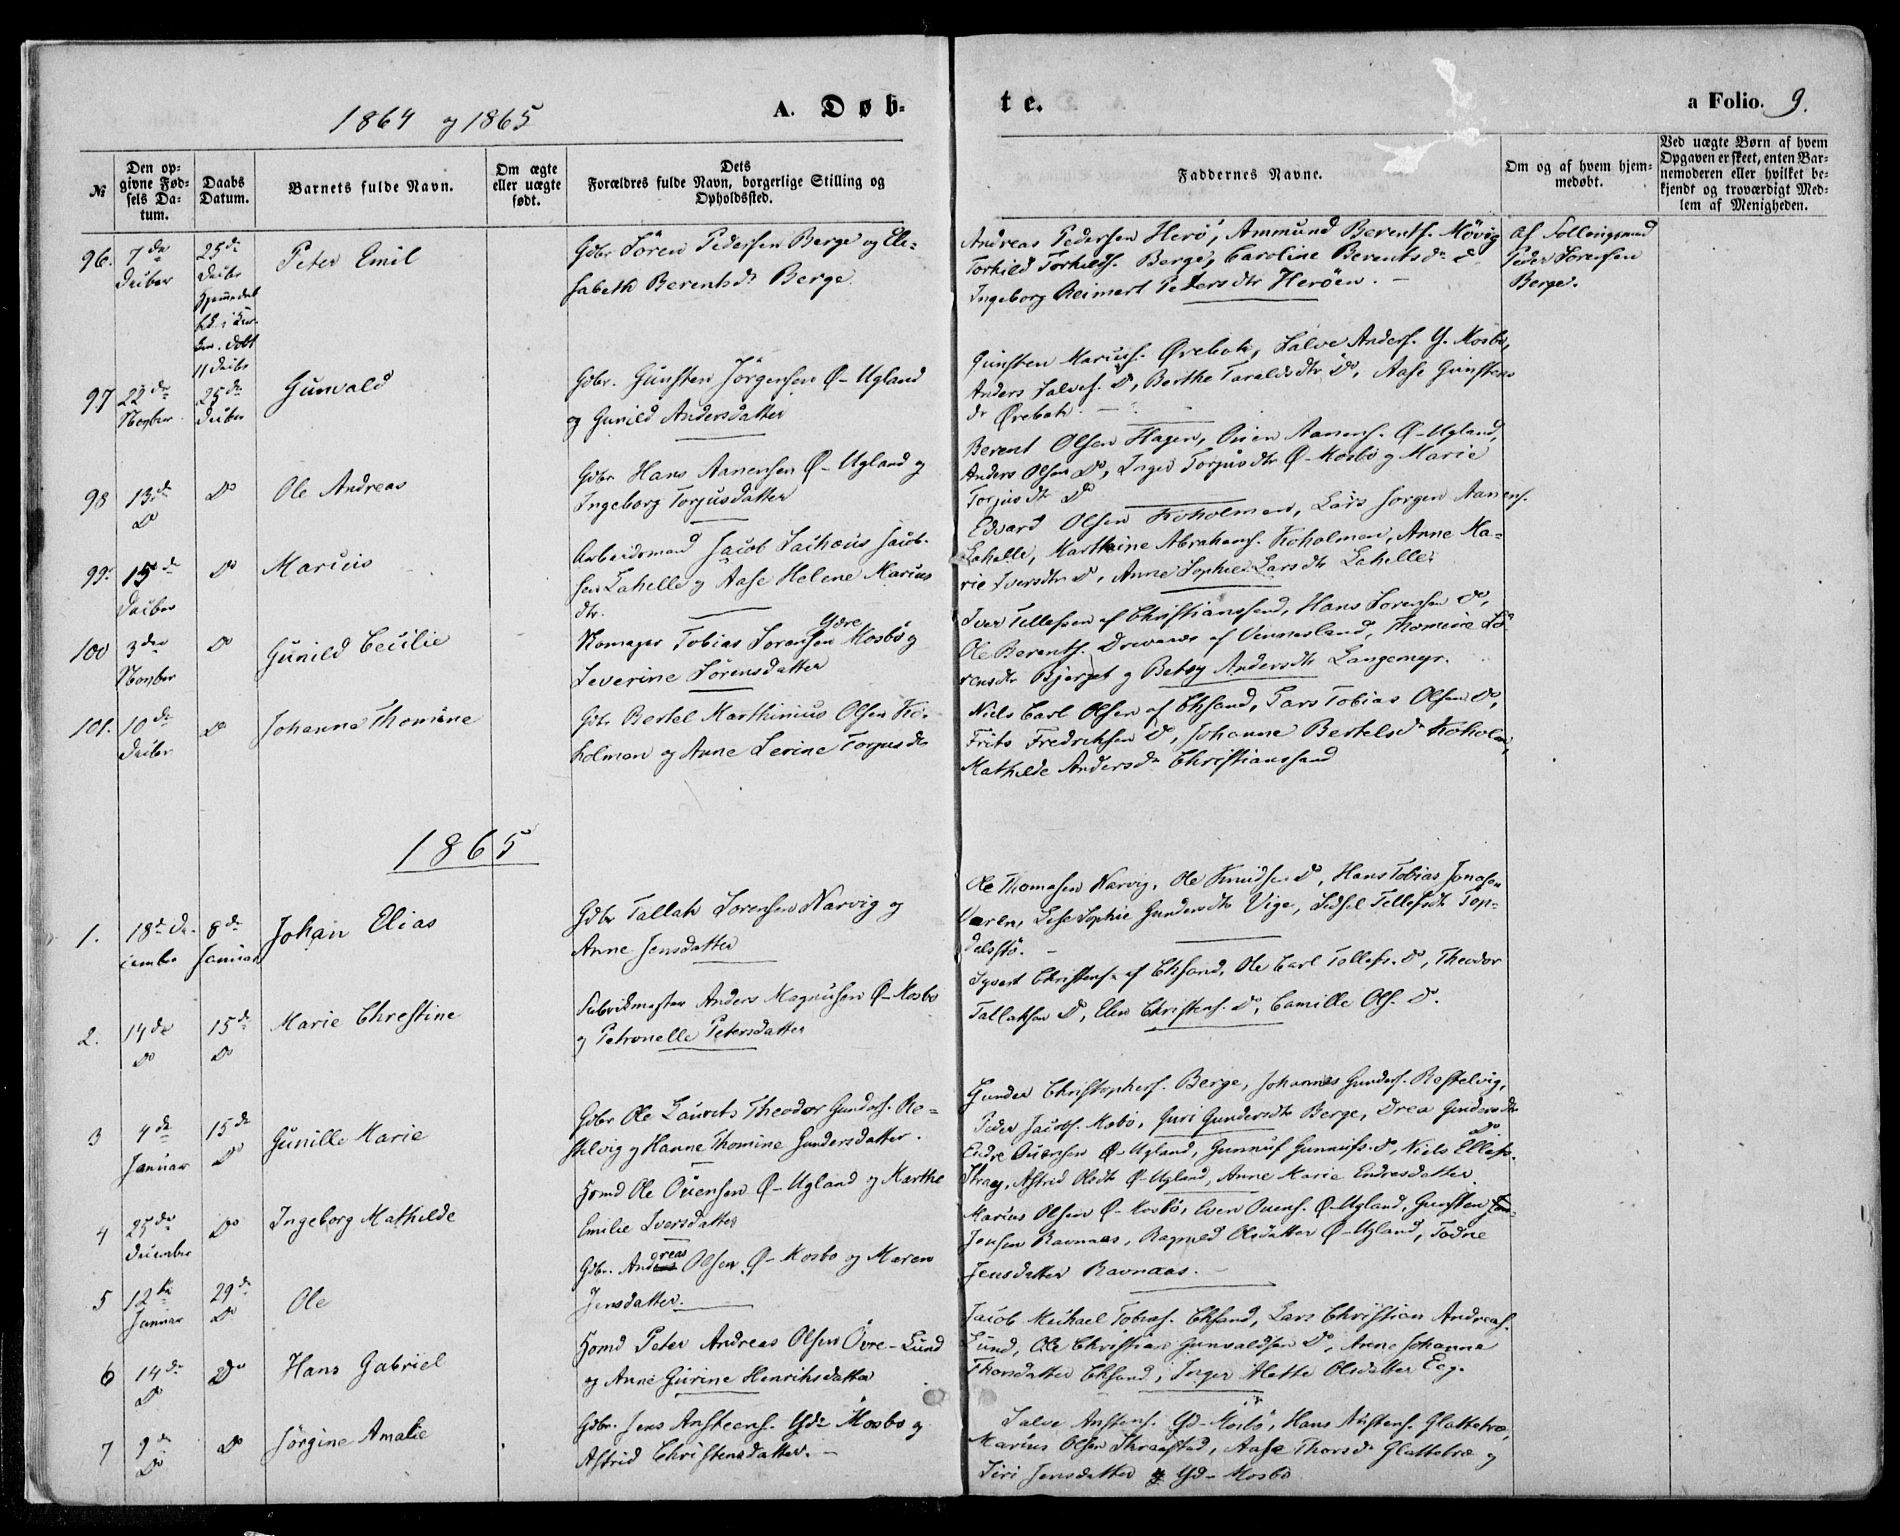 1864 og 1865
A. Døb-
te.
a Folio. 9.
№
Den op-
givne Fød-
sels Da-
tum.
Daabs
Datum.
Barnets fulde Navn.
Om ægte
eller uægte
født.
Dets
Forældres fulde Navn, borgerlige Stilling og
Opholdssted.
Faddernes Navne.
Om og af hvem hjem-
medøbt.
Ved uægte Børn af hvem
Opgaven er skeet, enten Bar-
nemoderen eller hvilket be-
kjendt og troværdigt Med-
lem af Menigheden.
96. 7de Decbr
25de Decbr
11 Decbr
Peter Emil
Gdbr Sören Pedersen Berge og Eli-
sabeth Berentsdr Berge
Andreas Pedersen Herö, Ammund Berents. Mövig
Torkild Torkilds. Berge, Caroline Berentsdr Do
Ingeborg Reimert Pedersdtr Heröen. -
Peder Sörensen
Berge.
97 22de Novber
25de Decber
Gunvald
Gdbr. Gunsten Jörgensen Ø-Ugland
og Gunild Andersdatter
Gunsten Marius. Ørebak, Salve Anders. Y. Mosbö,
Anders Salves. Do, Berthe Taraldsdtr Do, Aase Gunstens
dr Ørebak.
98 13de Do
Do
Ole Andreas
Gdbr Hans Aanensen Ø-Ugland og
Ingeborg Torjusdatter
Berent Olsen Hagen, Ouen Aanens. Ø-Ugland,
Anders Olsen Do, Inger Torjusdtr Ø-Mosbö og Marie
Torjusdtr Do
99. 15de Decber
Do
Marius
Arbeidsmand Jacob Jacob-
sen Lahelle og Aase Helene Marius
dtr.
Edvard Olsen Koholmen, Lars Jörgen Aanens.
Lahelle, Marthine Abrahams. Koholmen, Anne Ma-
rie Iversdtr Do, Anne Sophie Larsdtr Lahelle
100 3die Novber
Do
Gunild Cecilie
Skomager Tobias Sörensen Ydre Mosbö og
Severine Sörensdatter
Iver Tellefsen af Christianssand, Hans Sörensen Do,
Ole Berents. Drivenes af Vennesland, Thomine Sö-
rensdtr Bjerget og Betsy Andersdtr Langemyr.
101. 10de Decbr
Do
Johanne Thomine
Gdbr Bertel Marthinius Olsen Ko-
holmen og Anne Serine Torjusdr
Niels Carl Olsen af Chsand, Lars Tobias Olsen Do,
Frits Fredriksen Do, Johanne Bertelsdr Koholm,
Mathilde Andersdr Christianssand
1865
1. 18de De-
cember
8de Januar
Johan Elias
Gdbr Tallak Sörensen Narvig og
Anne Jensdatter
Ole Thomasen Narvig, Ole Knudsen Do, Hans Tobias Jonasen
Lise Sophie Gundersdtr Vige, Sidsel Tellefsdtr Top-
dalsstö.
2. 14de Do
15de Do
Marie Christine
Fabrikmester Anders Magnusen Ø-Mosbö
og Petronelle Petersdatter
Syvert Christens. af Chsand, Ole Carl Tollefs. Do, Theodor
Tallaksen Do, Elen Christens. Do, Camille Ols. Do.
3 4de Januar
15de Do
Gunille Marie
Gdbr Ole Laurits Theodor Gunders. Re-
stelvig og Hanne Thomine Gundersdatter.
Gunder Christophers. Berge, Johannes Gunders. Restelvig,
Peder Jacobs. Mosbö, Guri Gundersdtr Berge, Drea Gundersdtr
Do
4 25de December
Do
Ingeborg Mathilde
Hsmd Ole Ouensen Ø-Ugland og Marthe
Emilie Iversdatter
Endre Ouensen Ø-Ugland, Gunnuf Gunnufs. Do, Niels Ellefs.
Straj, Astrid Olsdtr Ø-Ugland, Anne Marie Endresdatter.
5 12te Januar
29de Do
Ole
Gdbr. Andreas Olsen Ø-Mosbö og Maren
Jensdatter.
Marius Olsen Ø-Mosbö, Even Ouens. Ø-Ugland, Gunsten
Jensen Ravnaas, Ragnild Olsdatter Ø-Ugland, Todne
Jensdatter Ravnaas.
6 14de Do
Do
Hans Gabriel
Hsmd Peter Andreas Olsen Övre-Lund
og Anne Gurine Henriksdatter
Jacob Michael Tobias. Chsand, Lars Christian Andreas.
Lund, Ole Christian Gunvaldsen Do, Anne Johanne
Thorsdatter Chsand, Inger Mette Olsdatter Eeg.
7 9de Do
Do
Jörgine Amalie
Gdbr. Jens Ansteens. Ydr Mosbö og
Astrid Christensdatter. -
Salve Anstens. Yd-Mosbö, Hans Anstens. Glattetræ,
Marius Olsen Straistad, Aase Thorsdr Glattetræ og
Siri Jensdatter Yd-Mosbö